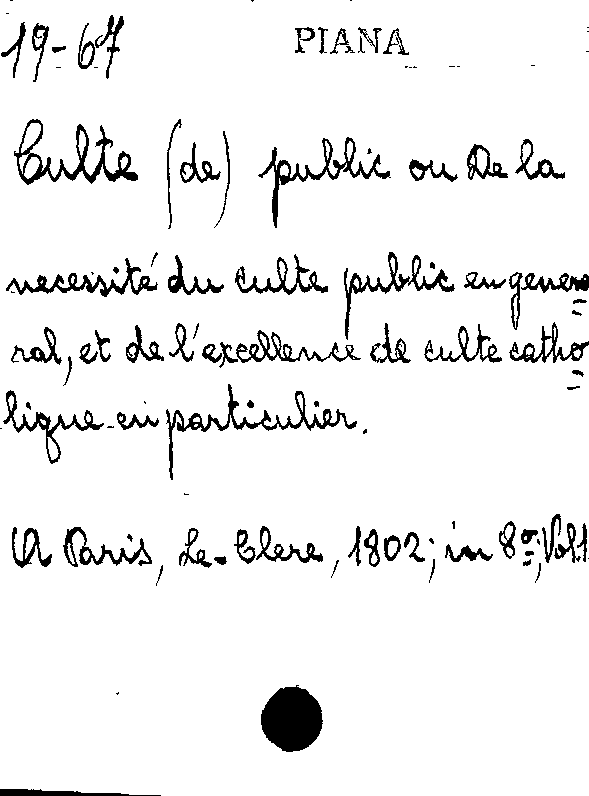 19-67 PIANA
Culte (de) public ou De la
necessité du culte public en gene=
ral, et de l'excellence de culte catho=
lique en particulier.
A Paris, Le-Clere, 1802; in 8º, Vol.1